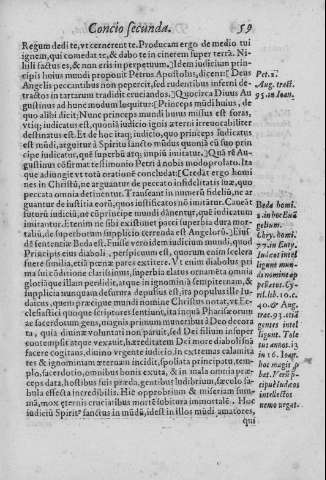 Concio secunda. 59
Regum dedi te, vt cernerent te. Producam ergo de medio tui
ignem, qui comedat te, & dabo te in cinerem super terrā. Ni-
hili factus es, & non eris in perpetuum.) Idem iudicium prin-
cipis huius mundi proponit Petrus Apostolus, dicens: [Deus
Angelis peccantibus non pepercit, sed rudentibus inferni de-
tractos in tartarum tradidit cruciandos.] Quocirca Diuus Au
gustinus ad hunc modum loquitur: [Princeps mūdi huius, de
quo alibi dicit; Nunc princeps mundi huius missus est foras,
vtiq; iudicatus est, quoniā iudicio ignis æterni irreuocabiliter
destinatus est. Et de hoc itaq; iudicio, quo princeps iudicatus
est mūdi, arguitur à Spiritu sancto mūdus quoniā cū suo prin
cipe iudicatur, quē superbū atq; impiū imitatur.] Quā rē Au-
gustinus cōfirmat testimonio Petri à nobis modo prolato. Ita
que adiungit vt totā orationē concludat: [Credāt ergo homi
nes in Christū, ne arguantur de peccato infidelitatis suæ, quo
peccata omnia detinentur. Transeant in numerū fideliū, ne ar
guantur de iustitia eorū, quos iustificatos nō imitātur. Caueāt
futurū iudiciū, ne cū principe mundi dānentur, quē iudicatum
imitantur. Etenim ne sibi existimet parci superbia dura mor-
taliū, de superborū supplicio perterrēda est Angelorū.] Eiusf
dē sententiæ Beda est. Fuisse verò idem iudicium mundi, quod
Principis eius diaboli, perspicuum est, quorum enim scelera
fuere similia, certa pœnæ pares extitere. Vt enim diabolus pri
ma sui cōditione clarissimus, superbia elatus ornamēta omnia
gloriæque illam perdidit, atque in ignominiā sempiternam, &
supplicia nunquam desinura depulsus est, ita populus ille Iu-
daicus, quem præcipuè mundi nomine Christus notat, vt Ec-
clesiastici quoque scriptores sentiunt, ita inquā Pharisæorum
ac sacerdotum gens, magnis primum muneribus à Deo decora
ta, quia diuinæ voluntati non paruit, sed Dei filium insuper
contempsit atque vexauit, hæreditatem Dei more diabolismā
facere cogitans, diuino vrgente iudicio, in extremas calamita
tes & ignominiam æternam incidit, spoliata principatu, tem-
plo, sacerdotio, omnibus bonis exuta, & in mala omnia præ-
ceps data, hostibus suis præda, gentibus ludibrium, sæculo fa-
bula effecta incredibilis. Hic opprobrium & miseriam sum-
mā, mox æternis cruciatibus mortē sobitura immortalē. Hoc
iudiciū Spiritᵘ sanctus in mūdū, id est in illos mūdi amatores,
qui
Pet. 2.
Aug. tract.
95. in Ioan.
Beda homi.
2. in hoc Euā
gelium.
Chry. homi.
77. in Euty.
Iudæos intel
ligunt mun-
di nomine ap
pellatos. Cy-
ril. lib. 10. c.
40. & Aug.
trac. 93. etiā
gentes intel
ligunt. Tole
tus annot. 13
in 16. Ioan.
hoc magis p
bat. Verū p-
cipuè Iudæos
intellectos
nemo negat.